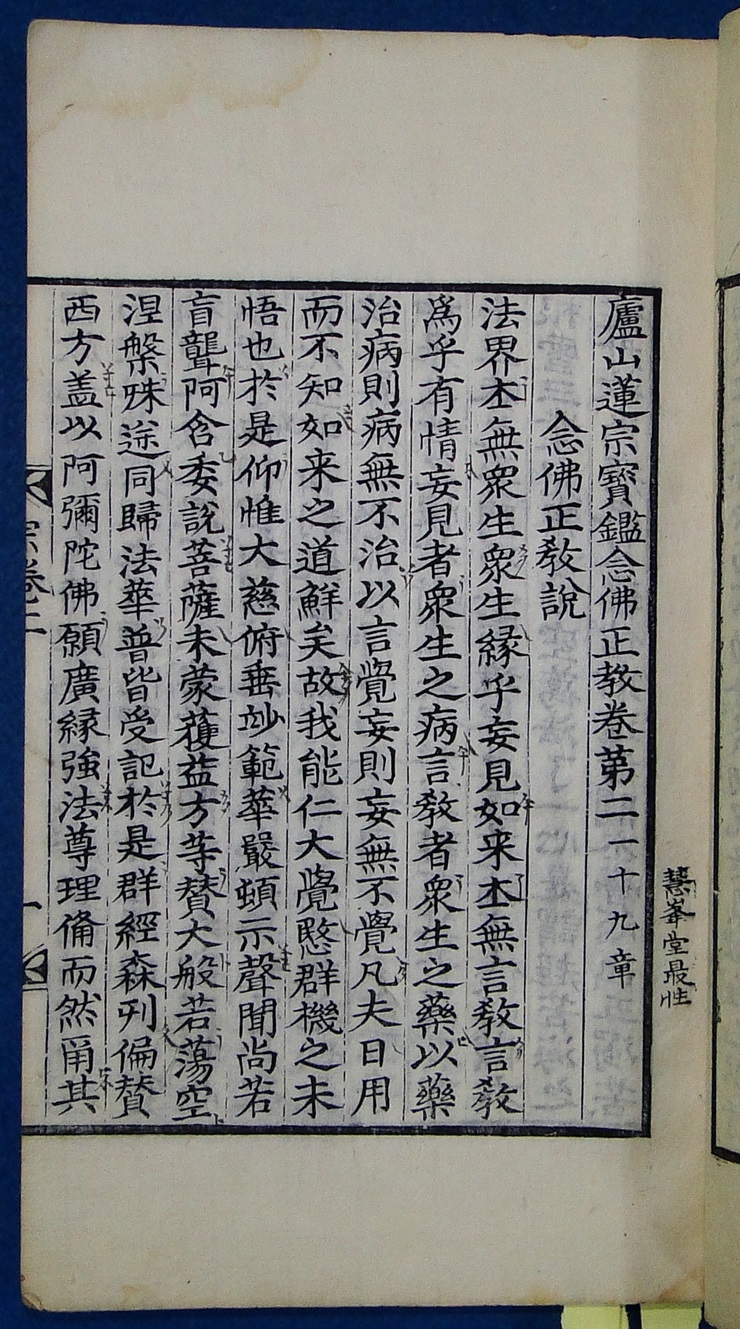 廬山蓮宗寶鑑念佛正教卷第二一十九章
念佛正教說
法界本無衆生衆生緣乎妄見如来本無言教言教
爲乎有情妄見者衆生之病言教者衆生之藥以藥
治病則病無不治以言覺妄則妄無不覺凡夫日用
而不知如来之道鮮矣故我能仁大覺愍群機之未
悟也於是仰惟大慈俯垂玅範華嚴頓示聲聞尚若
盲聾阿含委說菩薩未蒙穫益方等賛大般若蕩空
涅槃殊途同歸法華普皆受記於是群經森列偏賛
西方盖以阿彌陀佛願廣緣強法尊理備而然甭其
慧峯堂最性